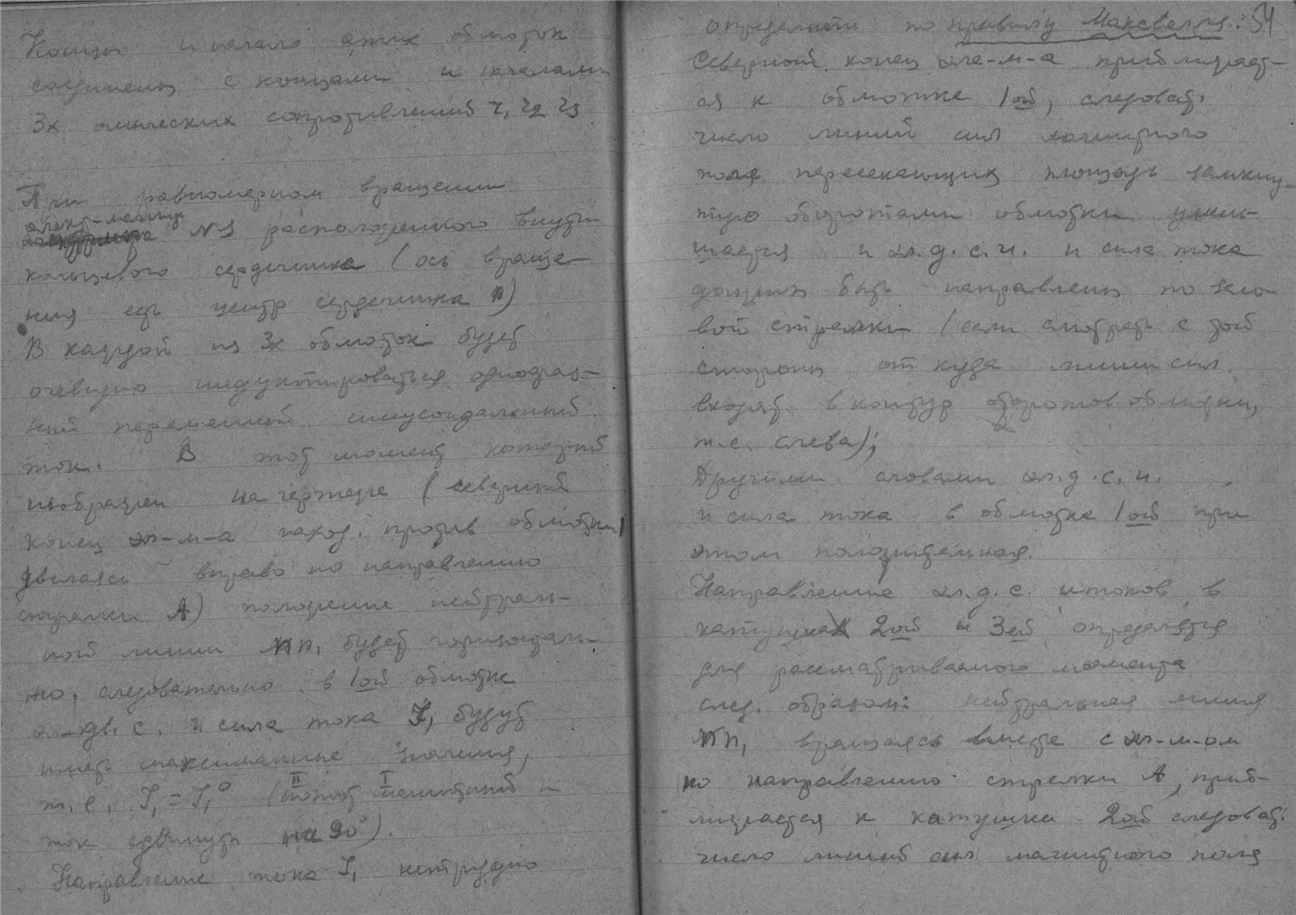 Концы и начало этих обмоток
соединены с концами и началами
3х омических сопротивлений r₁ r₂ r₃
При равномерном вращении
электр-магнита
NS расположенного внутри
кольцевого сердечника (ось враще-
ния есть центр сердечника n)
В каждой из 3х обмоток будет
очевидно индуктироваться однофаз-
ный переменный синусоидальный
ток. В тот момент который
изображен на чертеже (северный
конец эл-м-а наход. против обмотки 1
двигаясь вправо по направлению
стрелки A) положение нейтраль-
ной линии nn₁ будет горизонталь-
но, следовательно в 1ой обмотке
эл.дв.с. и сила тока J₁ будут
иметь максимальные значения,
т.е. J₁ = J₁⁰ (II поток I магнитный и
ток сдвинуты на 90°).
Направление тока J₁ нетрудно
54
определить по правилу Максвелла:
Северный конец эле-м-а приближает-
ся к обмотке 1ой, следоват.
число линий сил магнитного
поля пересекающих площадь замкну-
тую оборотами обмотки умень-
шается и эл.д.с.и. и сила тока
должны быть направлены по часо-
вой стрелки (если смотреть с той
стороны от куда линии сил.
входят в контур оборотов обмотки,
т.е. слева);
Другими словами эл.д.с.и.
и сила тока в обмотке 1ой при
этом положительная.
Направление эл.д.с. и токов в
катушках 2ой и 3ей определятся
для рассматриваемого момента
след. образом: нейтральная линия
nn₁ вращаясь вместе с эл-м-ом
по направлению стрелки A, приб-
лижается к катушки 2ой следоват.
число линий сил магнитного поля